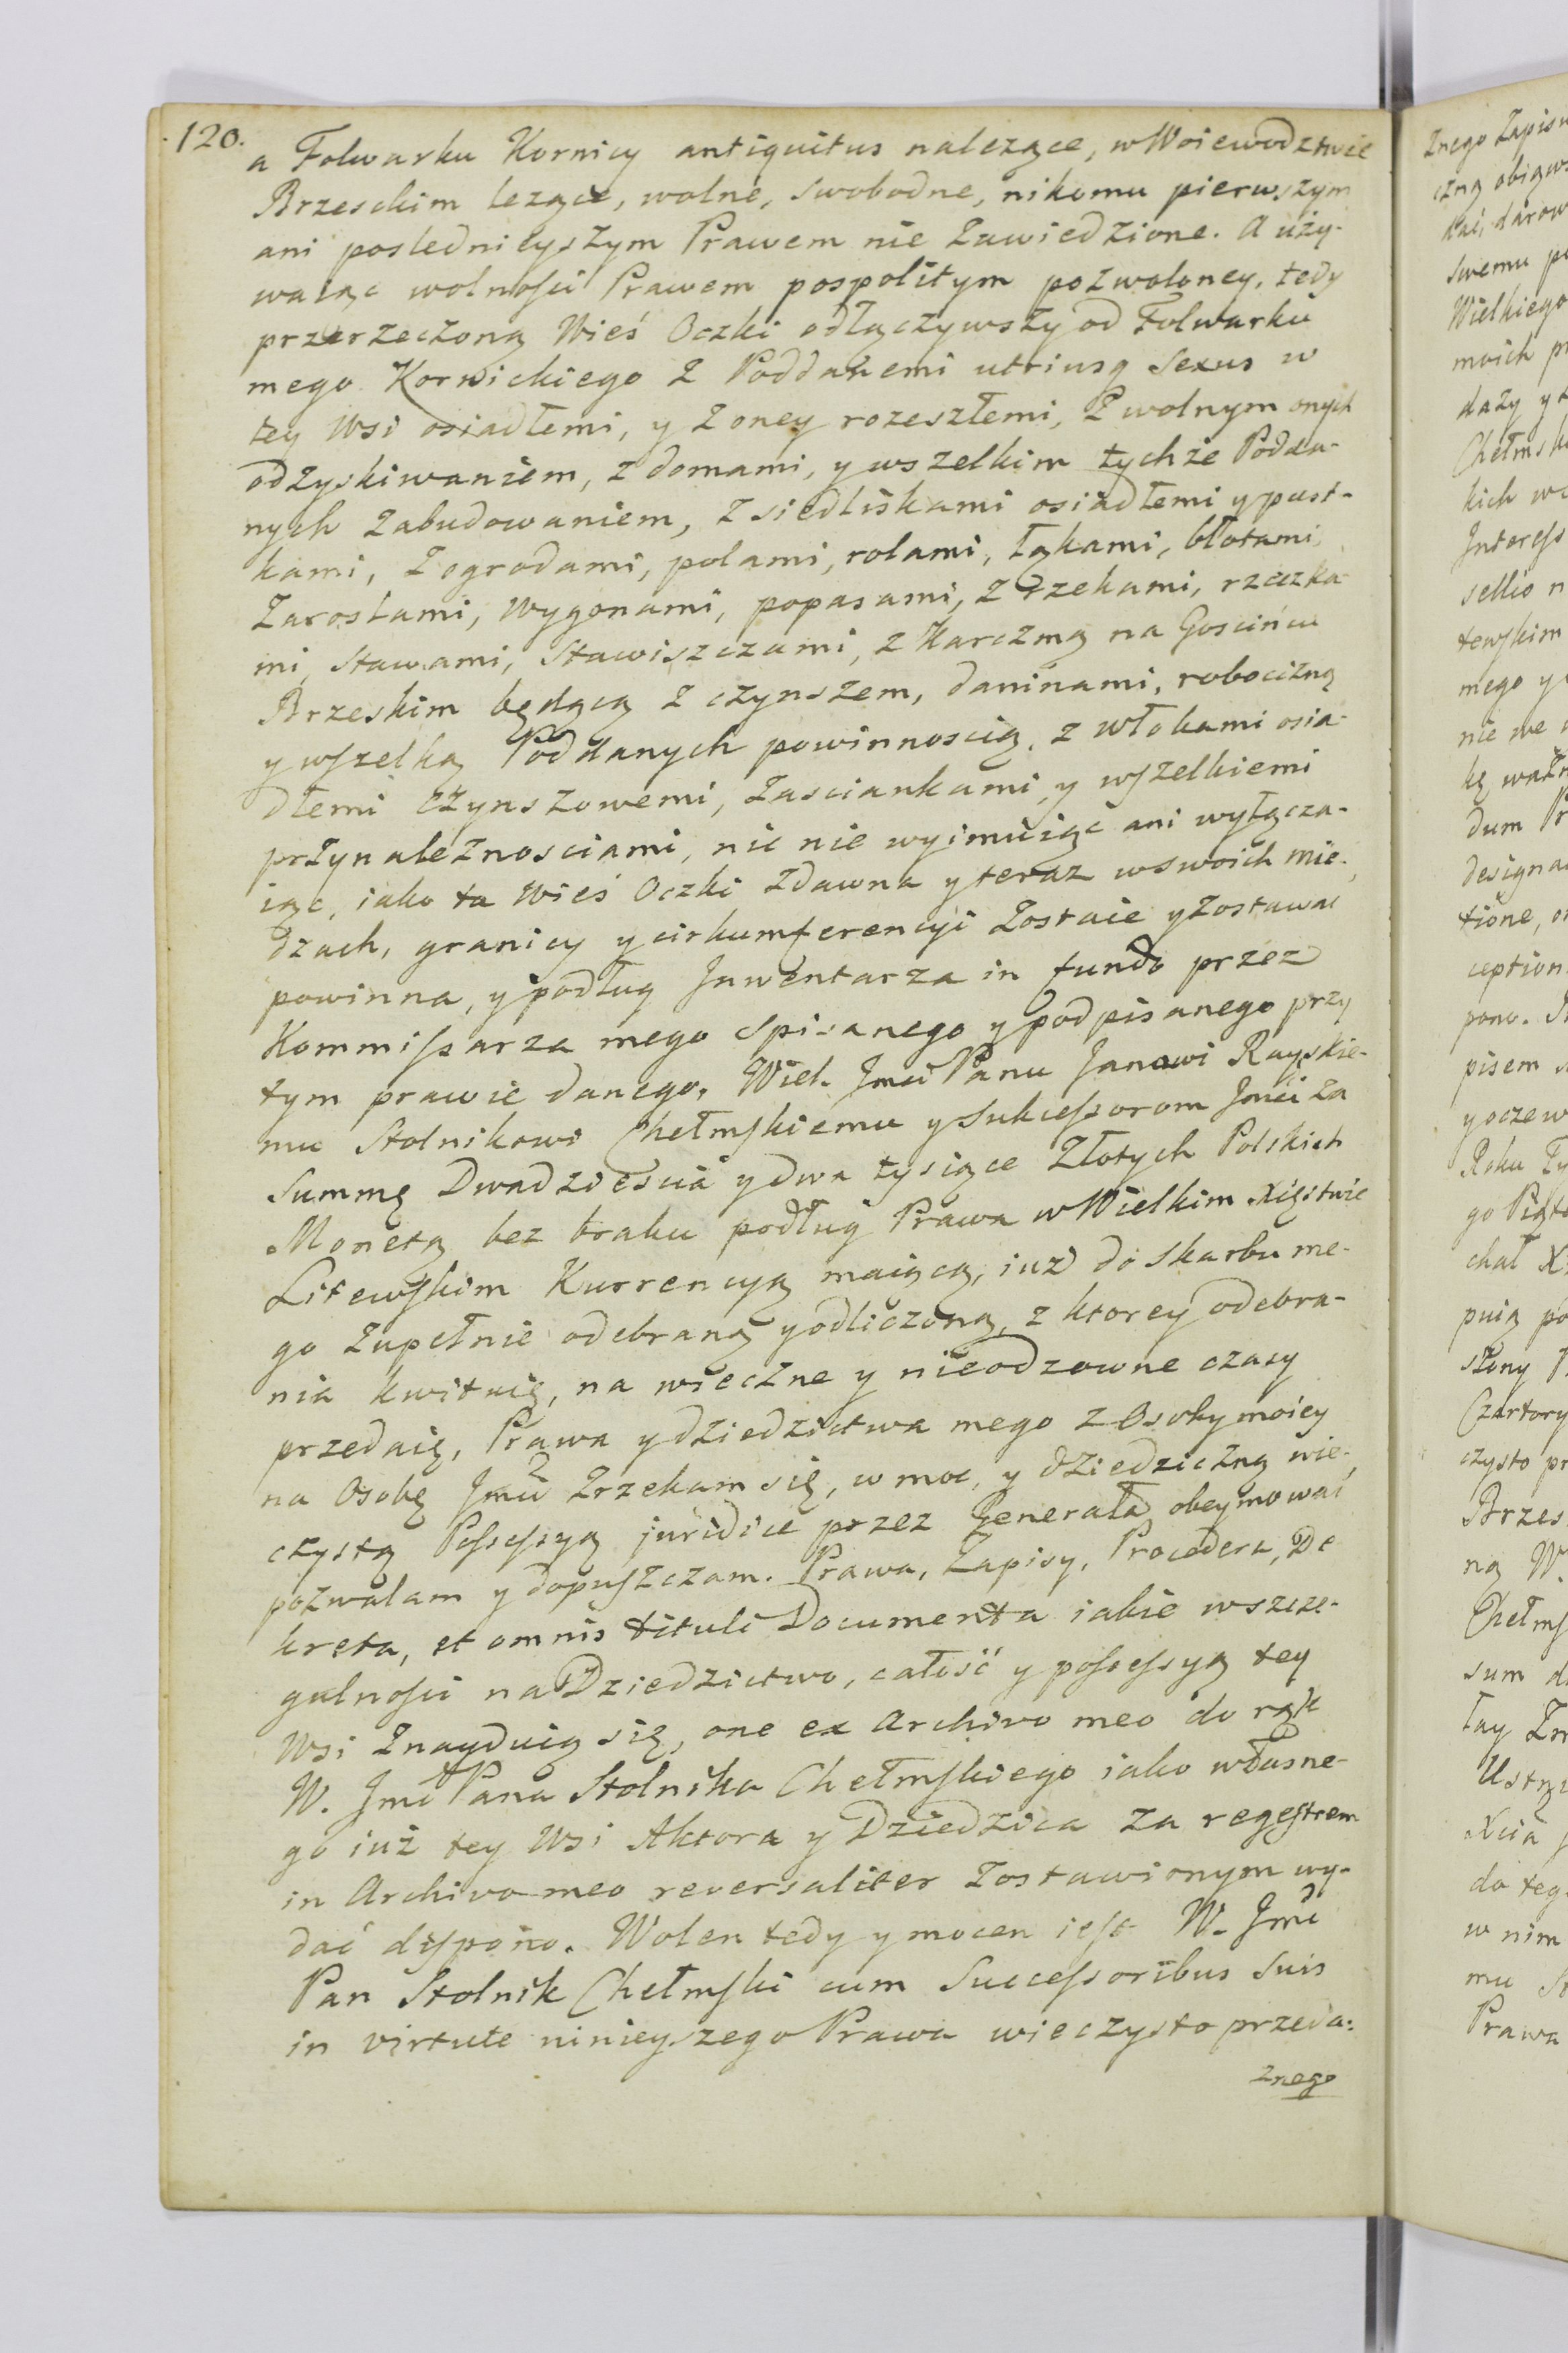 120.
a Folwarku Kornicy antiquitus nalezące, w Woiewodztwie
Brzeskim lezące, wolne, swobodne, nikomu pierwszym
ani poslednieyszym Prawem nie zawiedzione. A uży-
waiąc wolnosci Prawem pospolitym pozwoloney, tedy
przerzeczoną Wieś Oczki odłączywszy od Folwarku
mego Kornickiego z Poddanemi utriusq Sexus w
tey Wsi osiadłemi, y z oney rozeszłemi, z wolnym onych
odzyskiwaniem, z domami, y wszelkim tychże Podda-
nych zabudowaniem, z siedliskami osiadłemi y pust-
kami, z ogrodami, polami, rolami, łąkami, błotami,
zaroslami, wygonami, popasami, z rzekami, rzeczka-
mi, stawami, stawiszczami, z karczmą na Gościńcu
Brzeskim będącą z czynszem, daninami, robocizną
y wszelką Poddanych powinnoscią, z włokami osia-
dłemi czynszowemi, zasciankami, y wszelkiemi
przynaleznosciami, nic nie wyimuiąc ani wyłącza-
iąc, iako ta Wieś Oczki zdawna y teraz w swoich mie-
dzach, granicy y cirkumferencyi zostaie y zostawać
powinna, y podług Inwentarza in fundo przez
Kommissarza mego spisanego y podpisanego przy
tym prawie danego, Wiel. Jmći Panu Janowi Rayskie-
mu Stolnikowi Chełmskiemu y Sukcessorom Jmći za
Summę Dwadzieścia y dwa tysiące Złotych Polskich
Monetą bez braku podług Prawa w Wielkim Xięstwie
Litewskim Kurrencyą maiącą, iuż do skarbu me-
go zupełnie odebraną y odliczoną, z ktorey odebra-
nia kwituię, na wieczne y nieodzowne czasy
przedaię, Prawa y dziedzictwa mego z Osoby moiey
na Osobę Jmći zrzekam się, w moc, y dziedziczną wie-
czystą Possessyą juridice przez Generała obeymować
pozwalam y dopuszczam. Prawa, Zapisy, Procedera, De
kreta, et omnis tituli Documenta iakie w szcze-
gulnosci na Dziedzictwo, całość y possessyą tey
Wsi znayduią się, one ex Archivo meo do rąk
W. Jmći Pana Stolnika Chełmskiego iako własne-
go iuż tey Wsi Aktora y Dziedzica za regestrem
in Archivo meo reversaliter zostawionym wy-
dać dispono. Wolen tedy y mocen iest W. Jmć
Pan Stolnik Chełmski cum Successoribus suis
in virtute ninieyszego Prawa wieczysto przeda-
znego
znego Zapisu
czną obiąw
swemu
Wielkiego
moich
daży y
kich
sellio
tewskim
mego y
dum
tione,
pono.
pisem
Roku
chał
puią
Czartory
czysto
Brzes
ną W.
Chełms
sum
tay
do teg
w nim
mu
Prawa